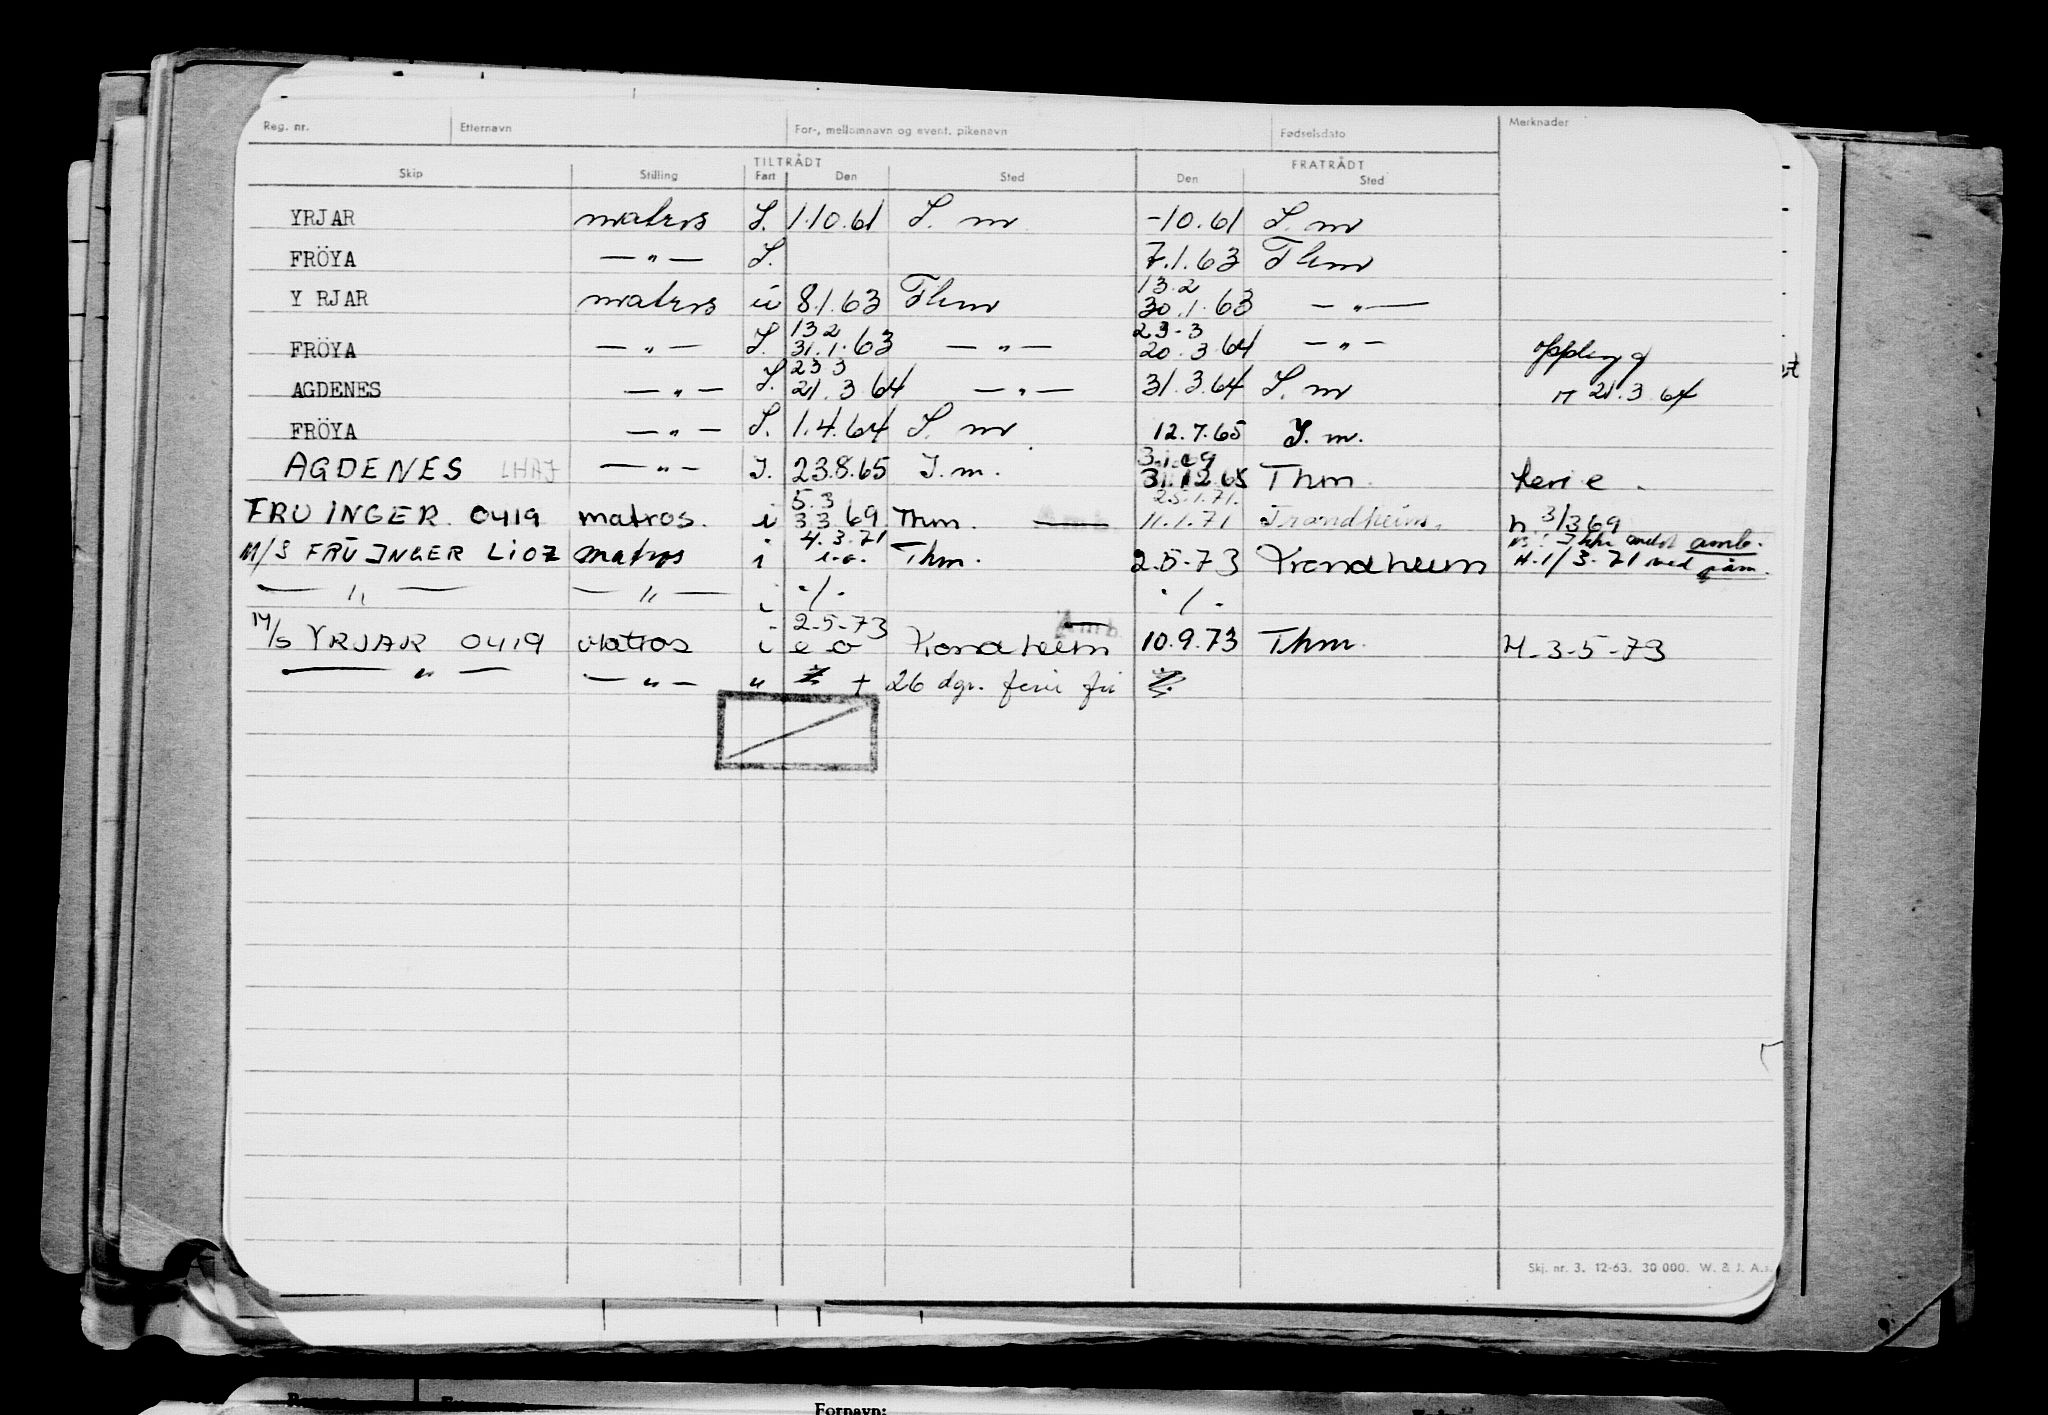 Reg. nr. Etternavn For-, mellomnavn og event. pikenavn Fødselsdato Merknader
TILTRÅDT FRATRÅDT
Skip Stilling Fart Den Sted Den Sted
YRJAR matros I. 1.10.61 I. m -10.61 I. m
FRÖYA — " — I. 7.1.63 Thm
13.2
Y RJAR matros i 8.1.63 Thm 30.1.63 — " —
13 2 23-3
FRÖYA — " — I. 31.1.63 — " — 20.3.64 — " —
23 3
AGDENES — " — I. 21.3.64 — " — 31.3.64 I. m 21.3.64
FRÖYA — " — I. 1.4.64 I. m 12.7.65 I. m.
3.1.69
AGDENES LHAJ — " — I. 23.8.65 I. m. 31.12.65 Thm. ferie.
5.3 25.1.71.
FRU INGER 0419 matros. i 3 3 69 Thm. Amb. 11.1.71 Trondheim. h. 3/3 69
4.3.71 amb.
M/S FRU INGER LIOZ matros i i.o. Thm. 2.5-73 Trondheim H.1/3-71 med påm.
— " — — " — i ./. ./.
2-5-73 Amb.
M/S YRJAR 0419 Matros i e o Trondheim 10.9.73 Thm. H.3-5-73
— " — — " — " + 26 dgr. ferie fri
Skj. nr. 3. 12-63. 30 000. W. & J. A.s.
Fornavn: